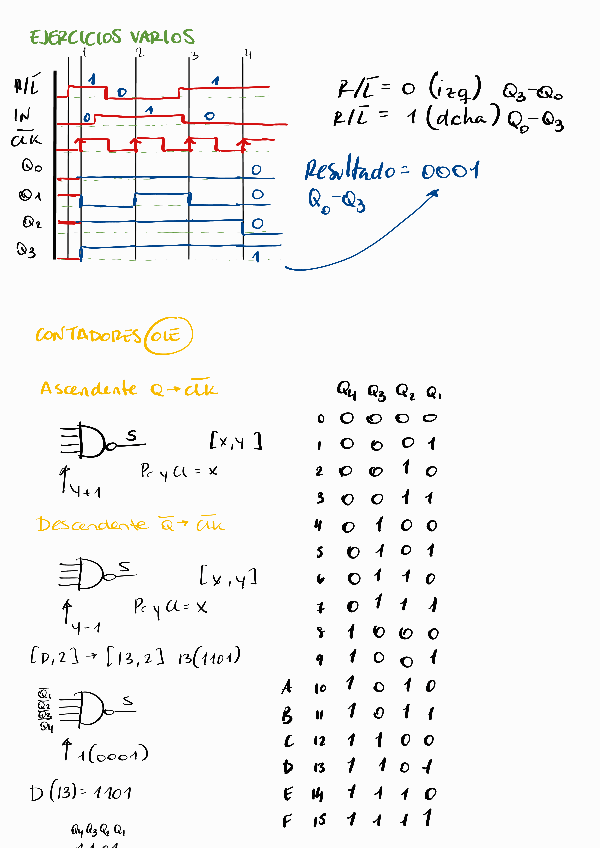 EJERCICIOS VARIOS
1 2 3 4
R/L̅ 1 0 1
IN 0 1 0
C̅L̅K̅
Q0 0
Q1 0
Q2 0
Q3 1
R/L̅ = 0 (izq) Q3-Q0
R/L̅ = 1 (dcha) Q0-Q3
Resultado = 0001
Q0-Q3
CONTADORES OLE
Ascendente Q → C̅L̅K̅
S [x,y]
Pr y Cl = x
y+1
Descendente Q̅ → C̅L̅K̅
S [x,y]
Pr y Cl = x
y-1
[D,2] → [13,2] 13(1101)
Q̅1
Q̅2
Q̅3
Q̅4
S
1(0001)
D(13) = 1101
Q4 Q3 Q2 Q1
1101
Q4 Q3 Q2 Q1
0 0 0 0 0
1 0 0 0 1
2 0 0 1 0
3 0 0 1 1
4 0 1 0 0
5 0 1 0 1
6 0 1 1 0
7 0 1 1 1
8 1 0 0 0
9 1 0 0 1
A 10 1 0 1 0
B 11 1 0 1 1
C 12 1 1 0 0
D 13 1 1 0 1
E 14 1 1 1 0
F 15 1 1 1 1